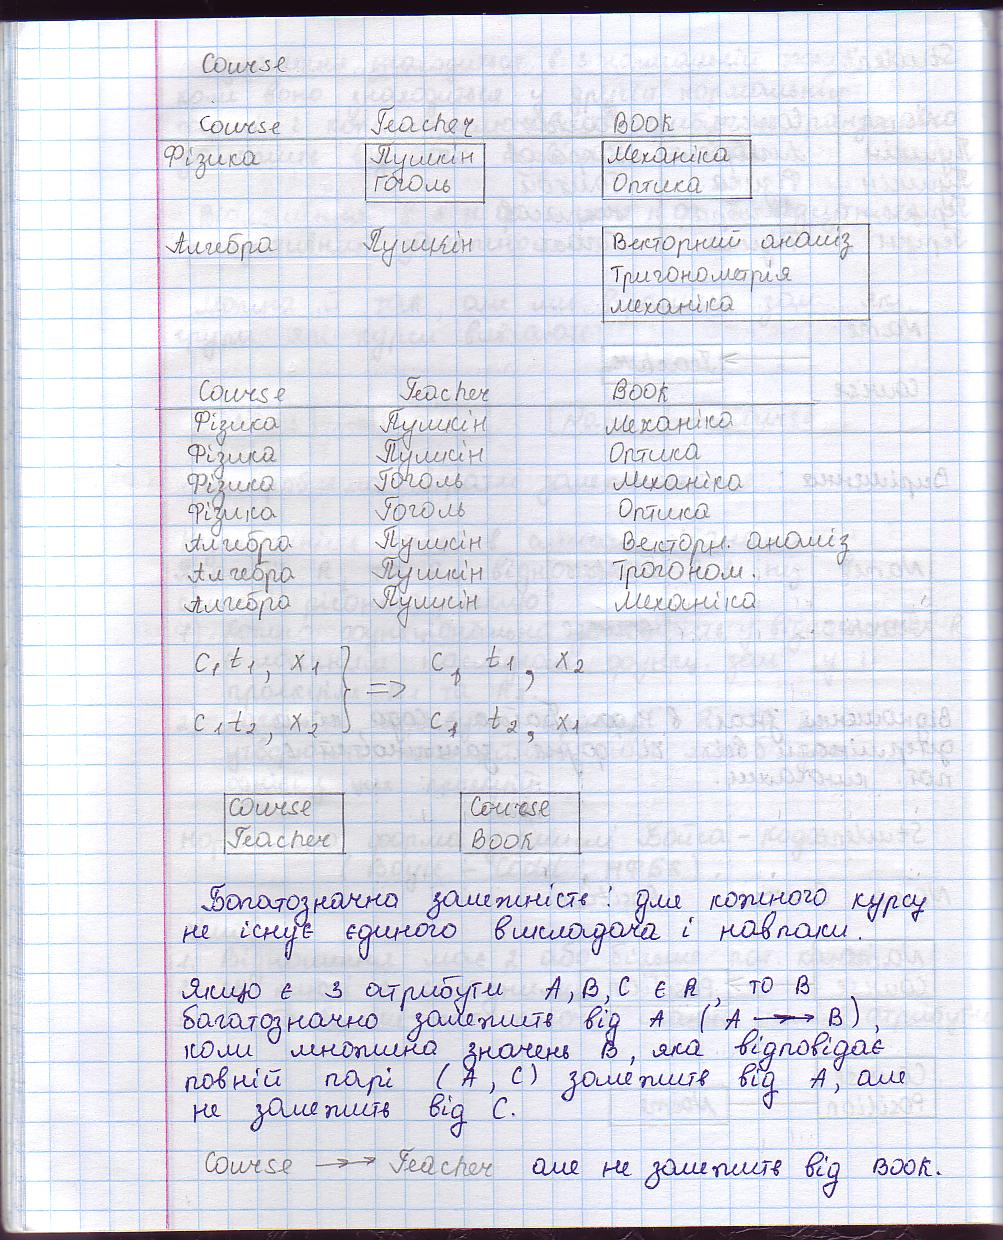 Course
Course Teacher BOOK
Фізика Пушкін Механіка
Гоголь Оптика
Алгебра Пушкін Векторний аналіз
Тригонометрія
Механіка
Course Teacher BOOK
Фізика Пушкін Механіка
Фізика Пушкін Оптика
Фізика Гоголь Механіка
Фізика Гоголь Оптика
Алгебра Пушкін Векторн. аналіз
Алгебра Пушкін Трогоном.
Алгебра Пушкін Механіка
C, t1, x1 } => C, t1, x2
C, t2, x2 C, t2, x1
Course Course
Teacher BOOK
Багатозначна залежність: для кожного курсу
не існує єдиного викладача і навпаки.
Якщо є 3 атрибути A, B, C є R, то B
багатозначно залежить від A (A →→ B),
коли множина значень B, яка відповідає
повній парі (A, C) залежить від A, але
не залежить від C.
Course →→ Teacher але не залежить від BOOK.